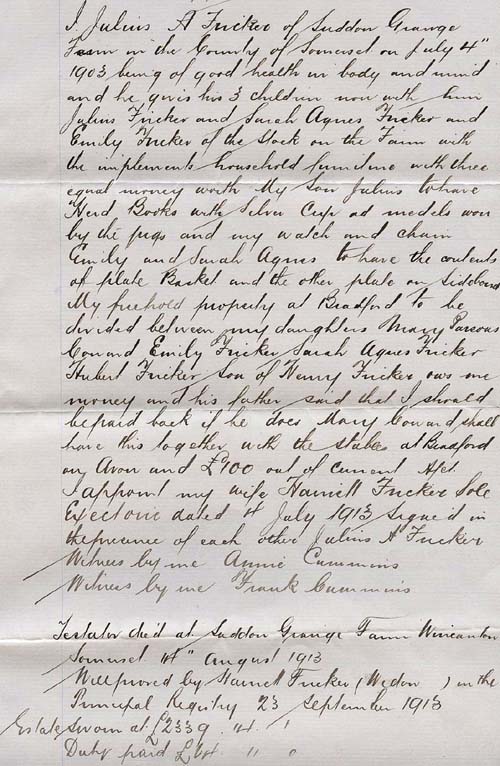 I Julius A Fricker of Suddon Grange
Farm in the County of Somerset on July 4"
1903 being of good health in body and mind
and he givis his 3 children now with him
Julius Fricker and Sarah Agnes Fricker and
Emily Fricker of the Stock on the Farm with
the implements household furniture with three
equal money worth My Son Julius to have
Herd Books with Silver Cup ad medels won
by the pigs and my watch and chain
Emily and Sarah Agnes to have the contents
of plate Basket and the other plate on Sideboard
My freehold property at Bradford to be
divided between my daughters Mary Parsons
Coward Emily Fricker Sarah Agnes Fricker
Hubert Fricker Son of Henry Fricker ows me
money and his father said that I should
be paid back if he does Mary Coward shall
have this together with the stables at Bradford
on Avon and £900 out of current
I appoint my wife Harriett Fricker Sole
Exectorie dated 4 July 1913 Signe'd in
the presence of each other Julius A Fricker
Witness by me Annie Cummins
Witness by me Frank Cummins
Testator die'd at Suddon Grange Farm Wincanton
Somerset 14" August 1913
Will proved by Harriett Fricker (Widow ) in the
Principal Registry 23 September 1913
Estate Sworn at £2339 . 14 . 1
Duty paid £